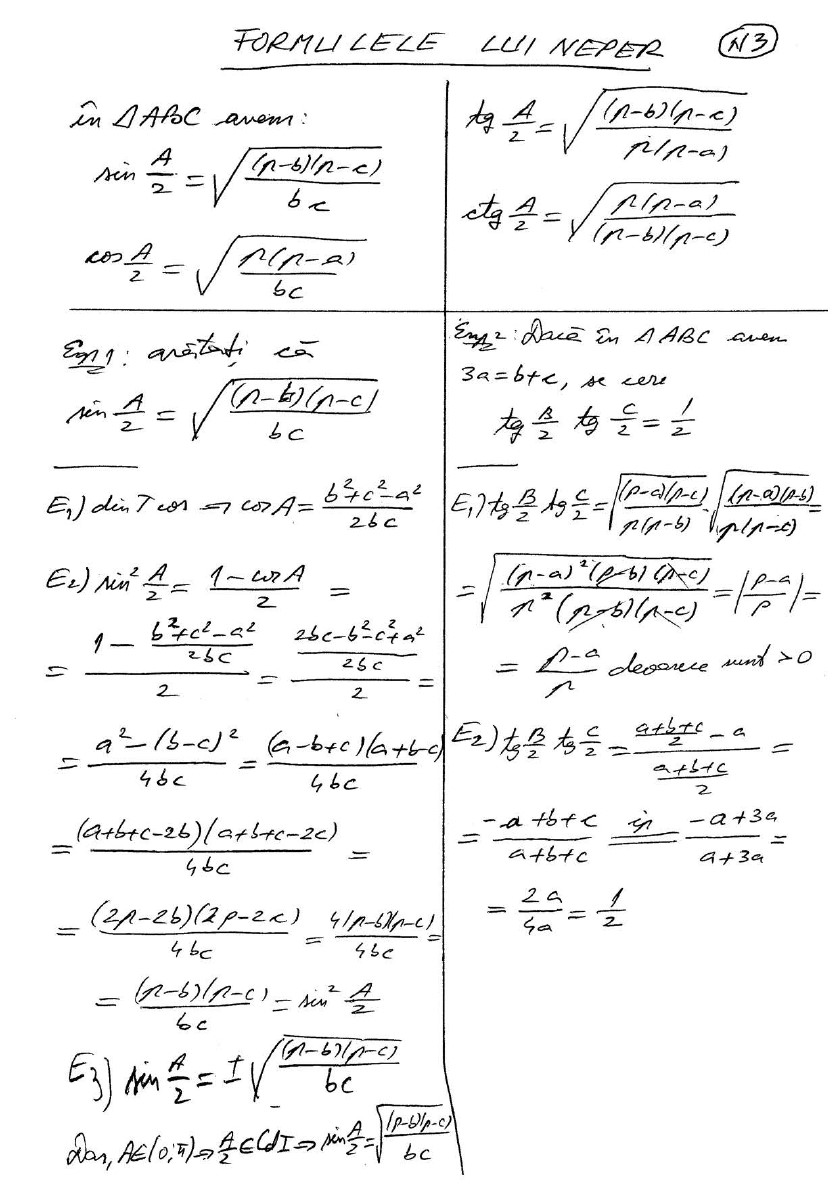 FORMULELE LUI NEPER N3
în ΔABC avem:
sin A/2 = √((p-b)(p-c)/bc)
cos A/2 = √(p(p-a)/bc)
tg A/2 = √((p-b)(p-c)/p(p-a))
ctg A/2 = √(p(p-a)/(p-b)(p-c))
Exp1: arătați că
sin A/2 = √((p-b)(p-c)/bc)
E1) din T cos ⇒ cos A = (b²+c²-a²)/2bc
E2) sin² A/2 = (1-cos A)/2 =
= (1 - (b²+c²-a²)/2bc)/2 = ((2bc-b²-c²+a²)/2bc)/2 =
= (a²-(b-c)²)/4bc = (a-b+c)(a+b-c)/4bc
= (a+b+c-2b)(a+b+c-2c)/4bc =
= (2p-2b)(2p-2c)/4bc = 4(p-b)(p-c)/4bc =
= (p-b)(p-c)/bc = sin² A/2
E3) sin A/2 = ±√((p-b)(p-c)/bc)
Dar, A∈(0;π) ⇒ A/2 ∈ Cd I ⇒ sin A/2 = √((p-b)(p-c)/bc)
Exp2: Dacă în ΔABC avem
3a=b+c, se cere
tg B/2 tg C/2 = 1/2
E1) tg B/2 tg C/2 = √((p-a)(p-c)/p(p-b)) · √((p-a)(p-b)/p(p-c)) =
= √((p-a)²(p-b)(p-c)/p²(p-b)(p-c)) = |(p-a)/p| =
= (p-a)/p deoarece sunt >0
E2) tg B/2 tg C/2 = ((a+b+c)/2 - a)/((a+b+c)/2) =
= (-a+b+c)/(a+b+c) ip= (-a+3a)/(a+3a) =
= 2a/4a = 1/2